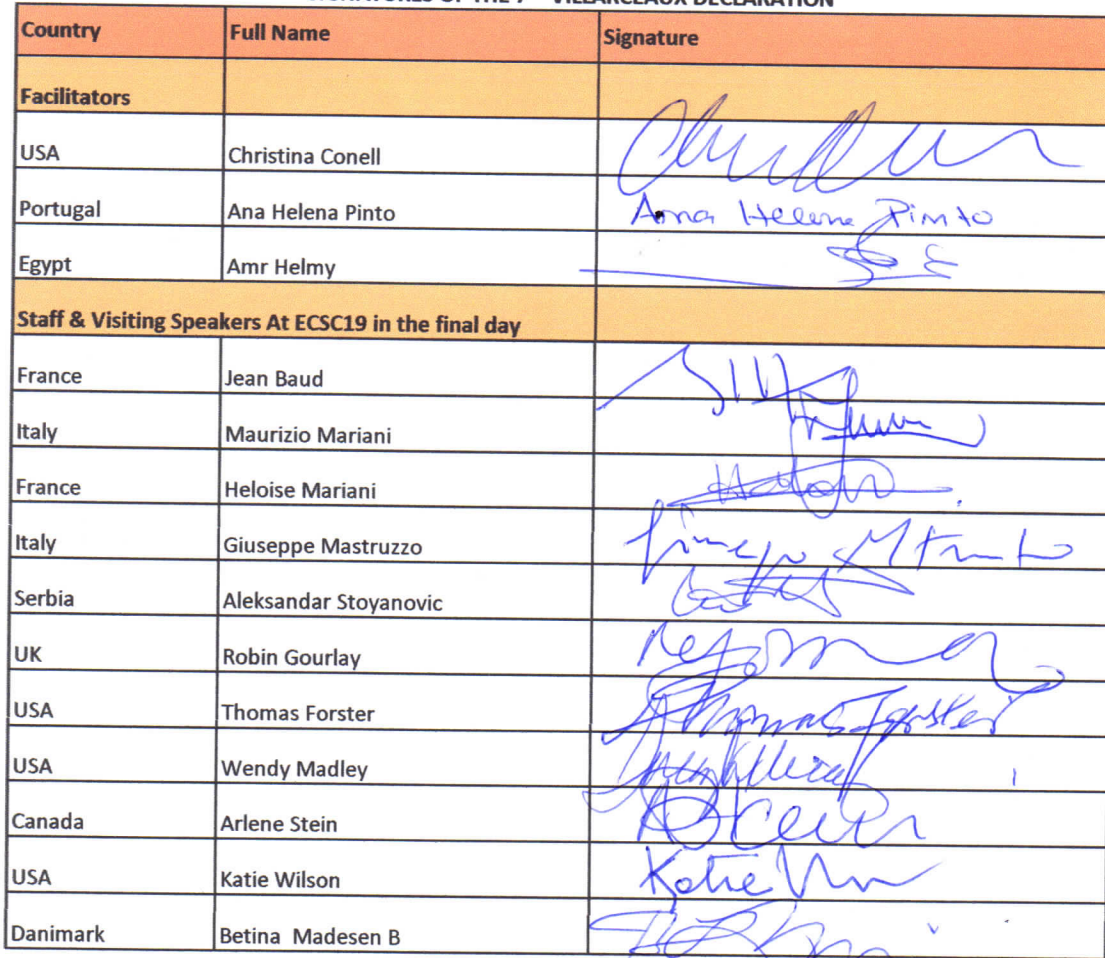 VILLARCEAUX DECLARATION
Country Full Name Signature
Facilitators
USA Christina Conell
Portugal Ana Helena Pinto Ana Helena Pinto
Egypt Amr Helmy
Staff & Visiting Speakers At ECSC19 in the final day
France Jean Baud
Italy Maurizio Mariani
France Heloise Mariani
Italy Giuseppe Mastruzzo
Serbia Aleksandar Stoyanovic
UK Robin Gourlay
USA Thomas Forster Thomas Forster
USA Wendy Madley
Canada Arlene Stein
USA Katie Wilson Katie
Danimark Betina Madesen B